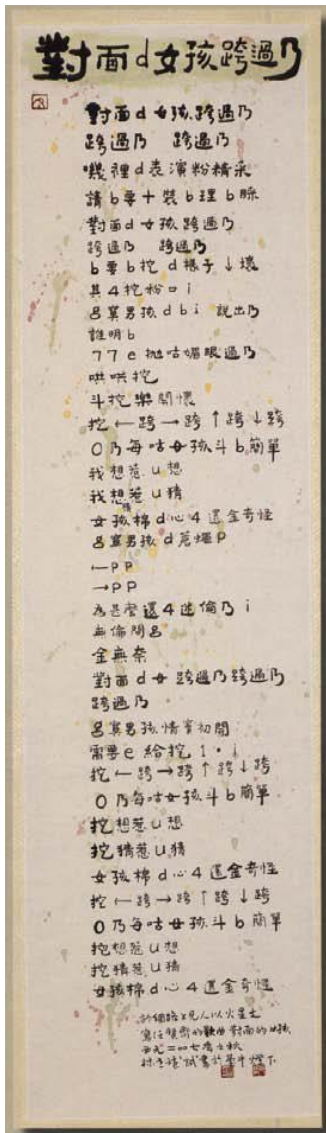 對面d女孩跨過乃
對面d女孩跨過乃
跨過乃 跨過乃
嘰裡d表演粉精采
請b要+裝b理b睬
對面d女孩跨過乃
跨過乃 跨過乃
b要b挖d樣子↓壞
其4挖粉口i
呂寞男孩dbi 說出乃
誰明b
77e拋咕媚眼過乃
哄哄挖
斗挖樂開懷
挖←跨→跨↑跨↓跨
0乃每咕女孩斗b簡單
我想惹u想
我想惹u猜
女孩棉d心4還金奇怪
呂寞男孩d蒼蠅P
←PP
→PP
為甚麼還4造倫乃i
無倫問呂
金無奈
對面d女 跨過乃跨過乃
跨過乃
呂寞男孩情竇初開
需要e給挖1·i
挖←跨→跨↑跨↓跨
0乃每咕女孩斗b簡單
挖想惹u想
挖猜惹u猜
女孩棉d心4還金奇怪
挖←跨→跨↑跨↓跨
0乃每咕女孩斗b簡單
挖想惹u想
挖猜惹u猜
女孩棉d心4還金奇怪
於網路上見人以火星文
寫任賢齊的歌曲對面的女孩
二〇〇七 秋
書於 燈下